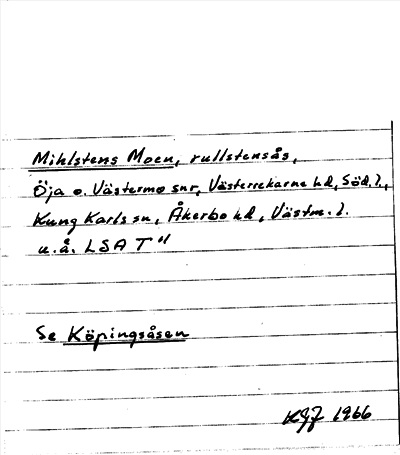 Mihlstens Moen, rullstensås,
Öja o. Västermo snr, Västerrekarne hd, Söd.l.,
Kung Karls sn, Åkerbo hd, Västm.l.
u.å. LSA T"
Se Köpingsåsen
1966